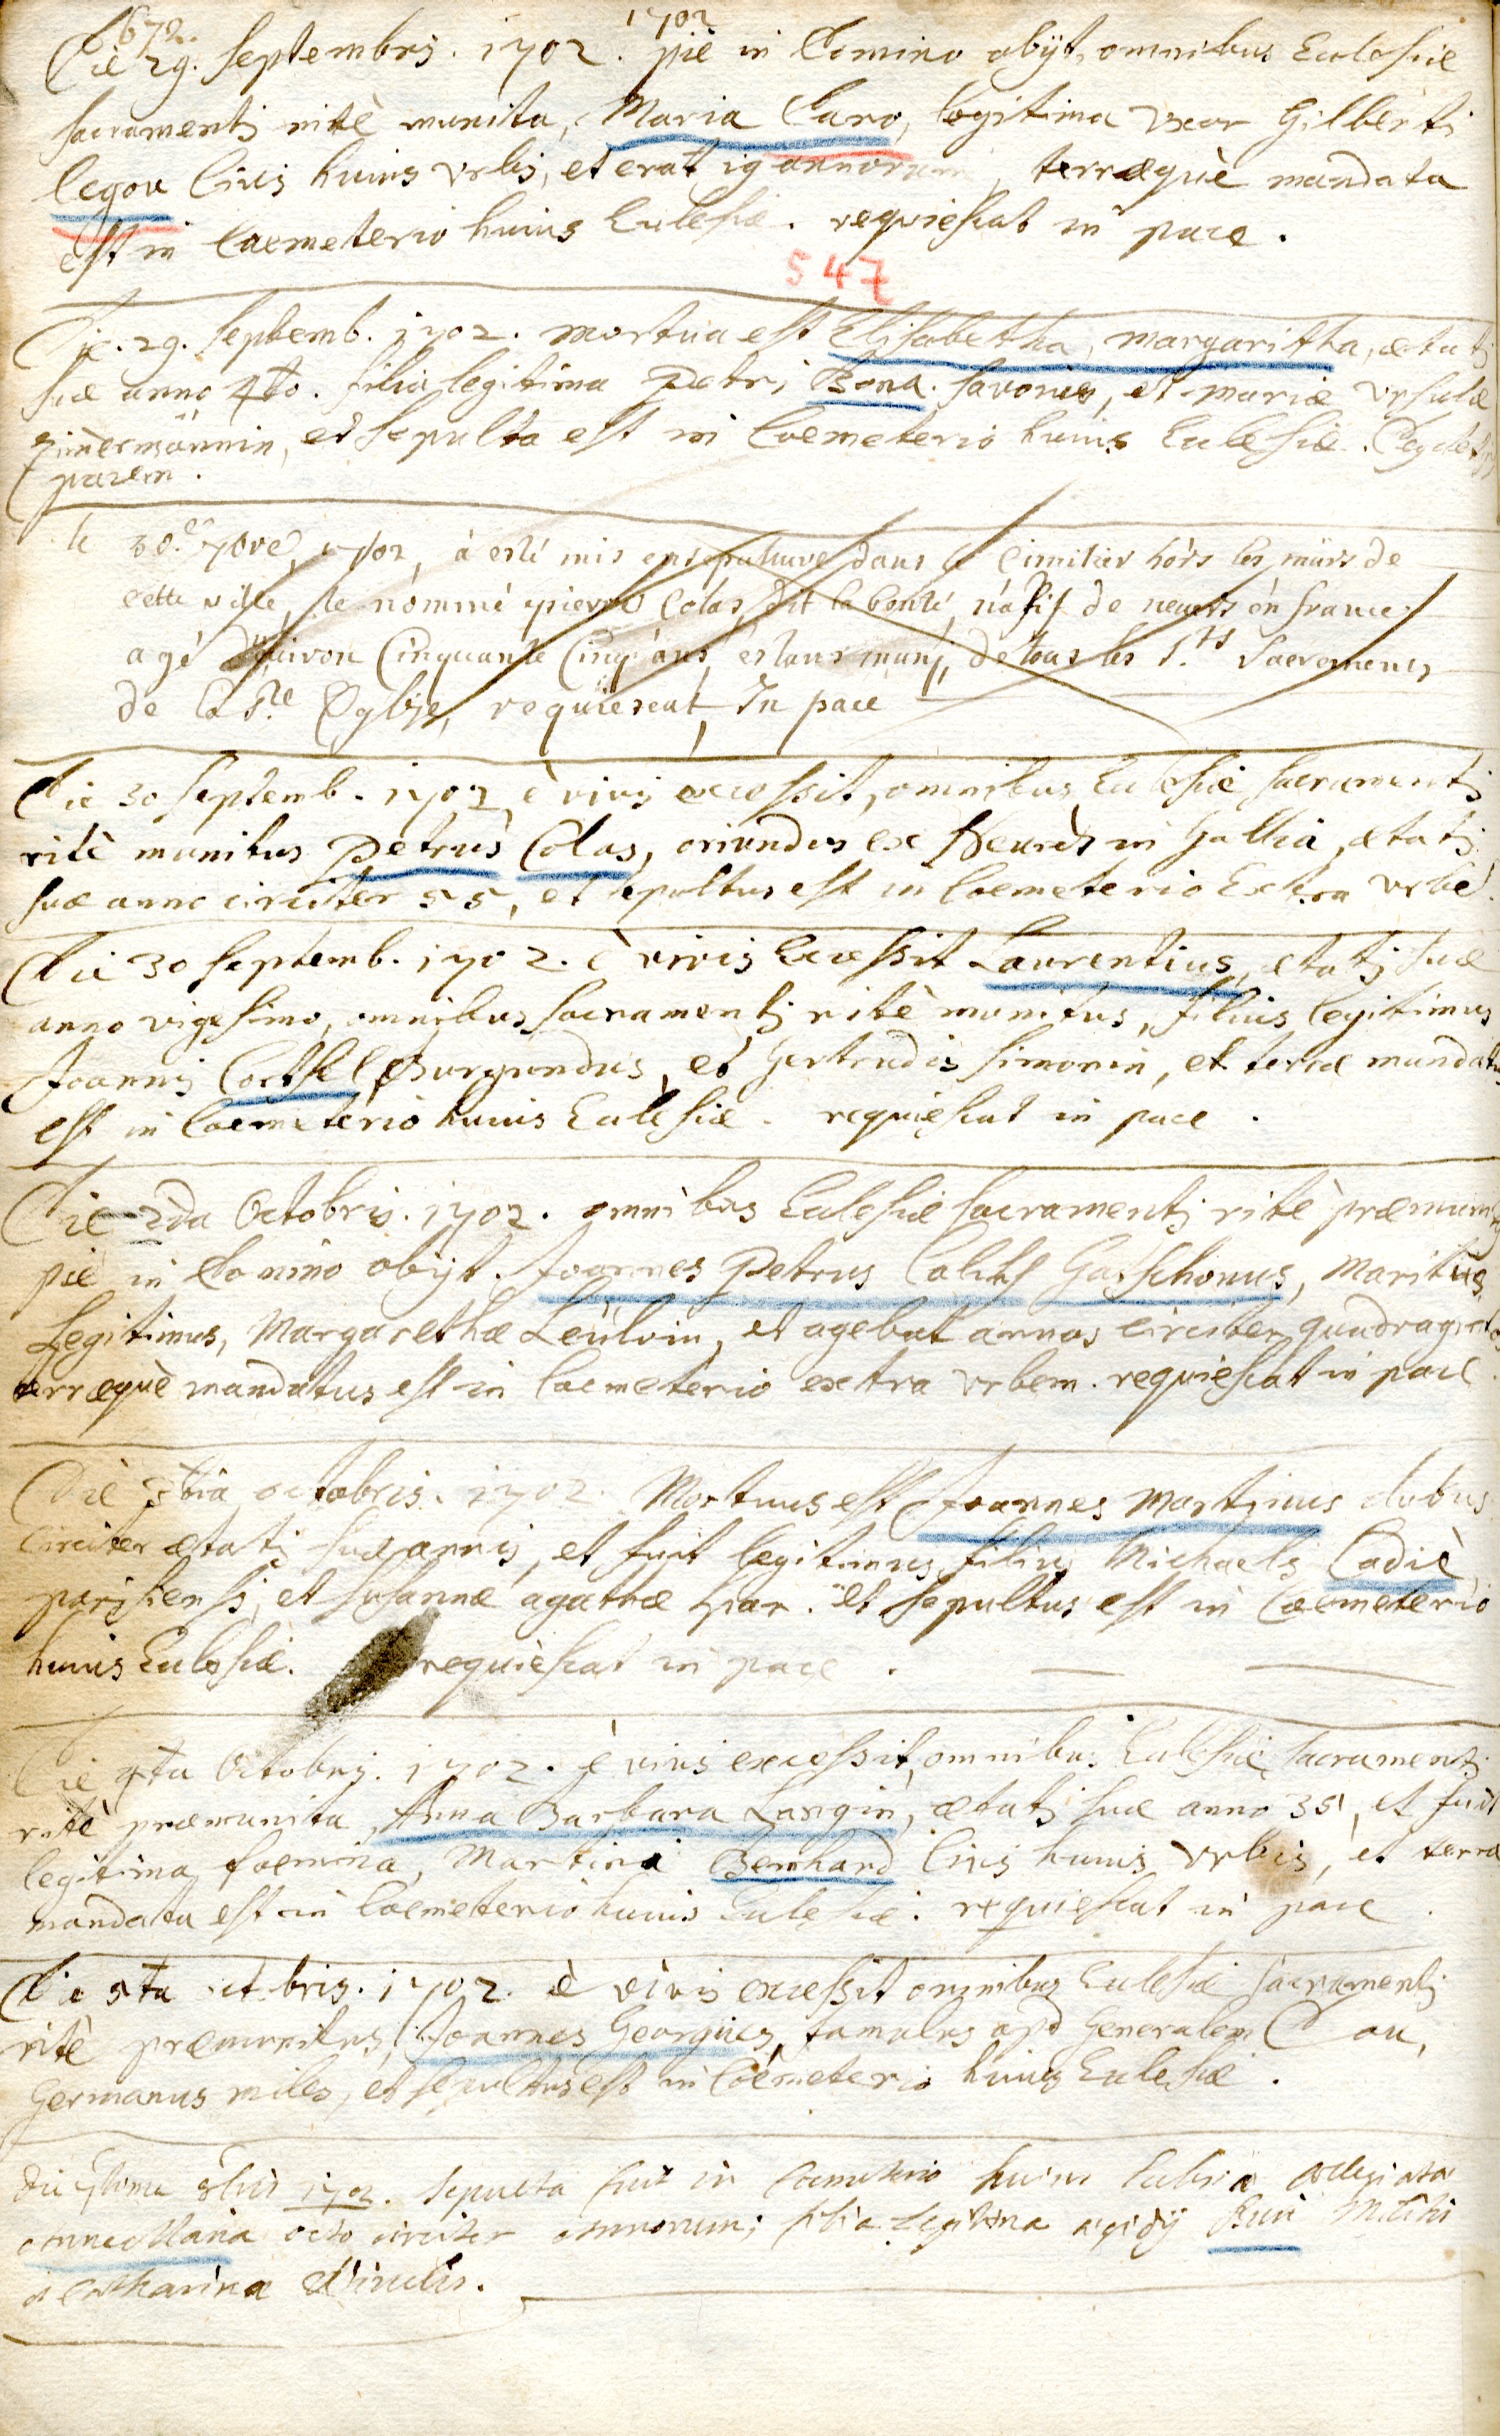 672. 1702
Die 29. Septembris. 1702. piè in Domino obijt, omnibus Ecclesiæ
sacramentis ritè munita, Maria Caro, legitima vxor Gilberti
legou Civis huius vrbis, et erat 19 annorum, terræquè mandata
est in Coemeterio huius Ecclesiæ. requiescat in pace.
547
Die. 29. Septemb. 1702. mortua est Elisabetha, margaritha, ætatis
suæ anno 4to. filia legitima Petri Bona. Savonien, et Mariæ Vrsulæ
Zim̀ermännin, et sepulta est in Coemeterio huius Ecclesiæ.
pacem.
le 30.e 7bre, 1702, à esté mis en sepulture dans le Cimitier hors les murs de
cette ville, le nommé pierre Colas, dit la bonté, natif de nevers en france,
agé d'Environ Cinquante Cinq ans, estant muny, de tous les S.ts Sacremens
de la S.te Eglise, requiescat In pace
Die 30 Septemb. 1702 è vivis excessit, omnibus Ecclesiæ sacramentis
ritè munitus Petrus Colas, oriundus ex Neuers in Gallia, ætatis
suæ anno circiter 55, et sepultus est in Coemeterio Extra vrbe.
Die 30 Septemb. 1702. è vivis Excessit Laurentius, ætatis suæ
anno vigesimo, omnibus sacramentis ritè munitus, filius legitimus
Joannis Coetsel Burgundus, et Gertrudis Simonin, et terræ mandatus
est in Coemeterio huius Ecclesiæ. requiescat in pace.
Die 2da Octobris. 1702. omnibus Ecclesiæ sacramentis ritè præmunitus
piè in Domino obijt. Joannes Petrus Calets Gatschonus, Maritus
Legitimus, Margarethæ Leülvin, et agebat annos circiter quadraginta
terræquè mandatus est in Coemeterio extra vrbem. requiescat in pace.
Die 3tia octobris. 1702. Mortuus est Joannes Martinus dubus
circiter ætatis suæ annis, et fuit legitimus filius Michaelis Cadiè,
parisiensis, et Susannæ agathæ har. et sepultus est in Coemeterio
huius Ecclesiæ. requiescat in pace.
Die 4ta Octobris. 1702. è vivis excessit, omnibus Ecclesiæ sacramentis
ritè præmunita, Anna Barbara Langin, ætatis suæ anno 35, et fuit
legitima foemina, Martini Bernhard Civis huius vrbis, et terræ
mandata est in Coemeterio huius Ecclesiæ. requiescat in pace.
Die 5ta octobris. 1702. è vivis excessit omnibus Ecclesiæ sacramentis
ritè præmunitus, Joannes Georgius, famulus apd Generalem
Germanus miles, et sepultus est in Coemeterio huius Ecclesiæ.
Die 8bris 1702. sepulta fuit in Cæmeterio huius Ecclesiæ collegiatæ
anna Maria octo circiter annorum; filia Legitima ægidij militis
et Catharinæ